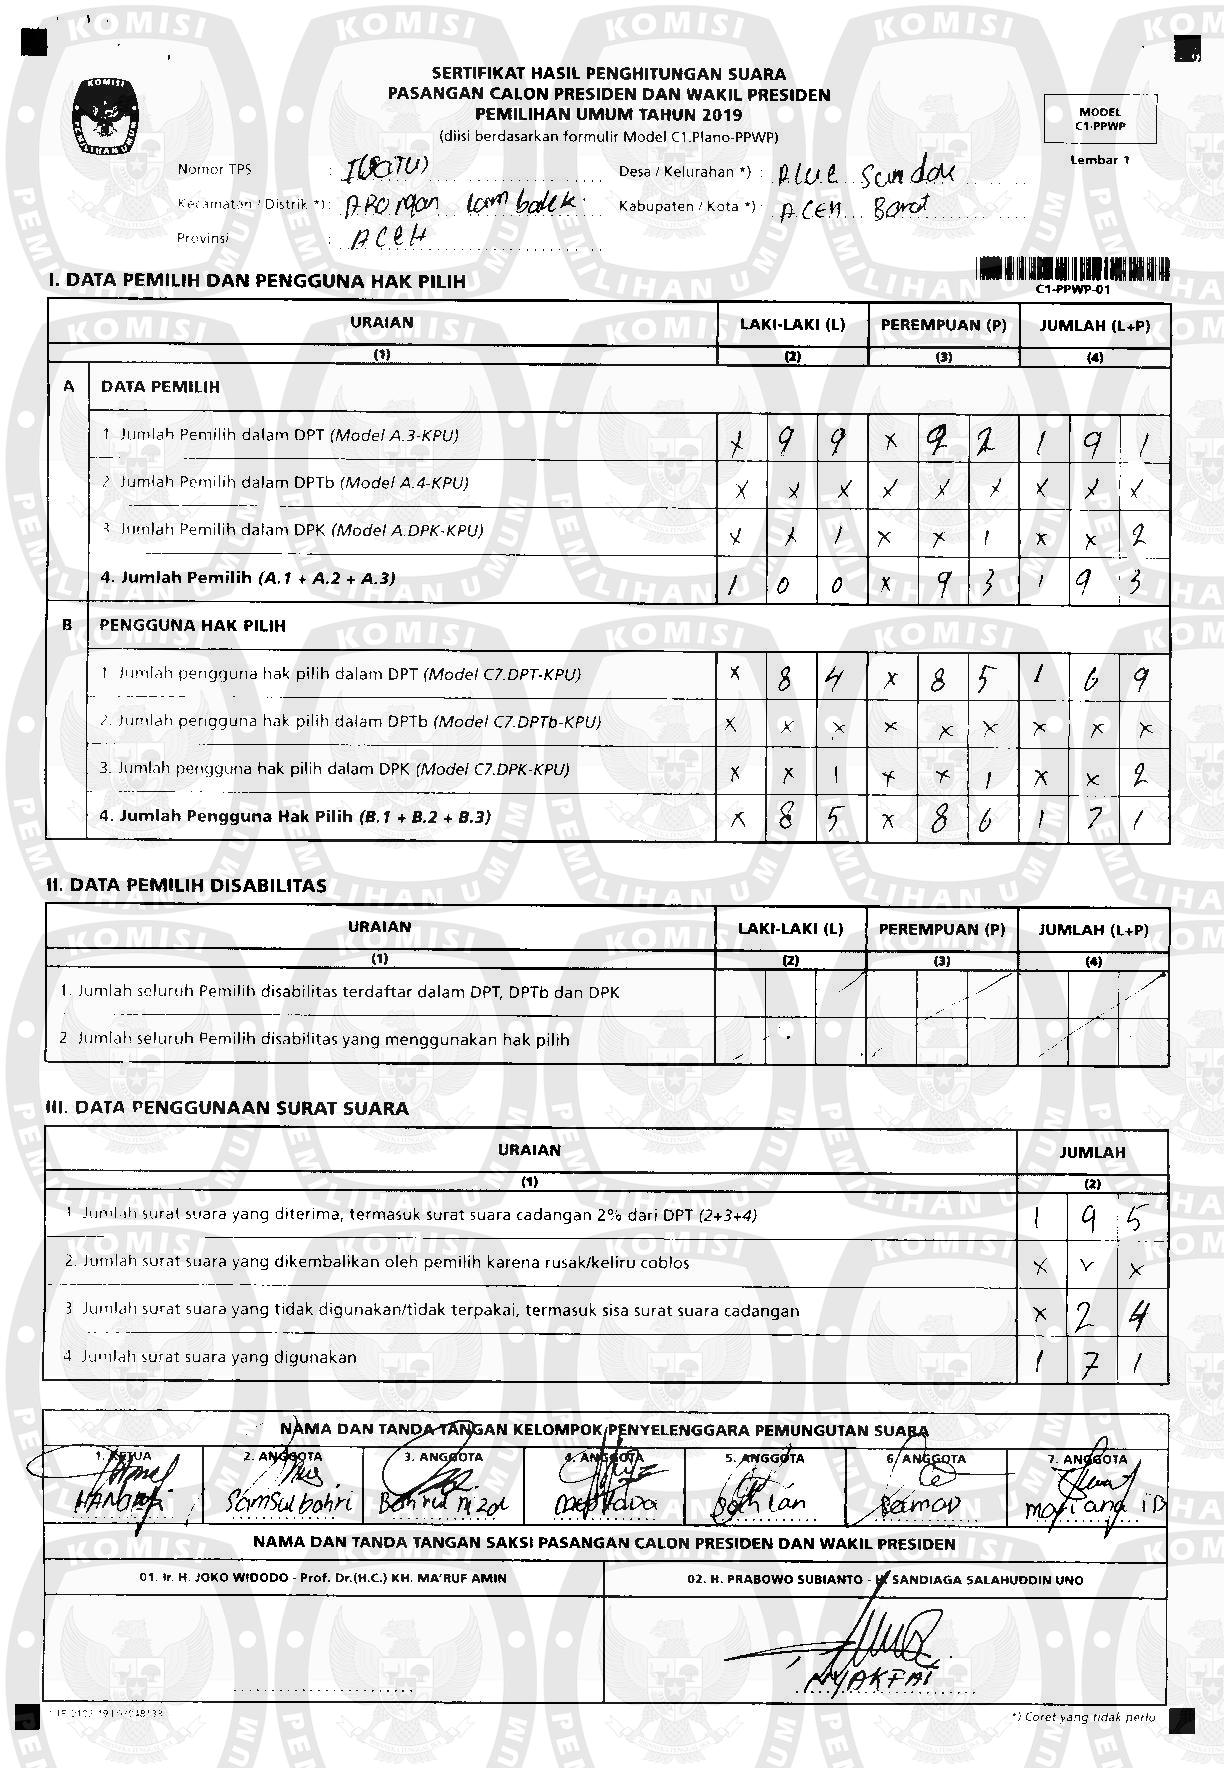 SERTIFIKAT HASIL PENGHITUNGAN SUARA
PASANGAN CALON PRESIDEN DAN WAKIL PRESIDEN
PEMILIHAN UMUM TAHUN 2019
(diisi berdasarkan formulir Model C1.Plano-PPWP)
MODEL
C1-PPWP
Lembar 1
Nomor TPS : I (SATU)
Desa / Kelurahan *) : Alue Sundak
Kecamatan / Distrik *) : ARongan Lambalek
Kabupaten / Kota *) : ACEH Barat
Provinsi : ACeH
C1-PPWP-01
I. DATA PEMILIH DAN PENGGUNA HAK PILIH
URAIAN LAKI-LAKI (L) PEREMPUAN (P) JUMLAH (L+P)
(1) (2) (3) (4)
A DATA PEMILIH
1. Jumlah Pemilih dalam DPT (Model A.3-KPU) X 9 9 X 9 2 1 9 1
2. Jumlah Pemilih dalam DPTb (Model A.4-KPU) X X X X X X X X X
3. Jumlah Pemilih dalam DPK (Model A.DPK-KPU) X X 1 X X 1 X X 2
4. Jumlah Pemilih (A.1 + A.2 + A.3) 1 0 0 X 9 3 1 9 3
B PENGGUNA HAK PILIH
1. Jumlah pengguna hak pilih dalam DPT (Model C7.DPT-KPU) X 8 4 X 8 5 1 6 9
2. Jumlah pengguna hak pilih dalam DPTb (Model C7.DPTb-KPU) X X X X X X X X X
3. Jumlah pengguna hak pilih dalam DPK (Model C7.DPK-KPU) X X 1 X X 1 X X 2
4. Jumlah Pengguna Hak Pilih (B.1 + B.2 + B.3) X 8 5 X 8 6 1 7 1
II. DATA PEMILIH DISABILITAS
URAIAN LAKI-LAKI (L) PEREMPUAN (P) JUMLAH (L+P)
(1) (2) (3) (4)
1. Jumlah seluruh Pemilih disabilitas terdaftar dalam DPT, DPTb dan DPK
2. Jumlah seluruh Pemilih disabilitas yang menggunakan hak pilih
III. DATA PENGGUNAAN SURAT SUARA
URAIAN JUMLAH
(1) (2)
1. Jumlah surat suara yang diterima, termasuk surat suara cadangan 2% dari DPT (2+3+4) 1 9 5
2. Jumlah surat suara yang dikembalikan oleh pemilih karena rusak/keliru coblos X X X
3. Jumlah surat suara yang tidak digunakan/tidak terpakai, termasuk sisa surat suara cadangan X 2 4
4. Jumlah surat suara yang digunakan 1 7 1
NAMA DAN TANDA TANGAN KELOMPOK PENYELENGGARA PEMUNGUTAN SUARA
1. KETUA 2. ANGGOTA 3. ANGGOTA 4. ANGGOTA 5. ANGGOTA 6. ANGGOTA 7. ANGGOTA
Samsul bahri
NAMA DAN TANDA TANGAN SAKSI PASANGAN CALON PRESIDEN DAN WAKIL PRESIDEN
01. Ir. H. JOKO WIDODO - Prof. Dr.(H.C.) KH. MA'RUF AMIN
02. H. PRABOWO SUBIANTO - H. SANDIAGA SALAHUDDIN UNO
NYAKFAI
*) Coret yang tidak perlu